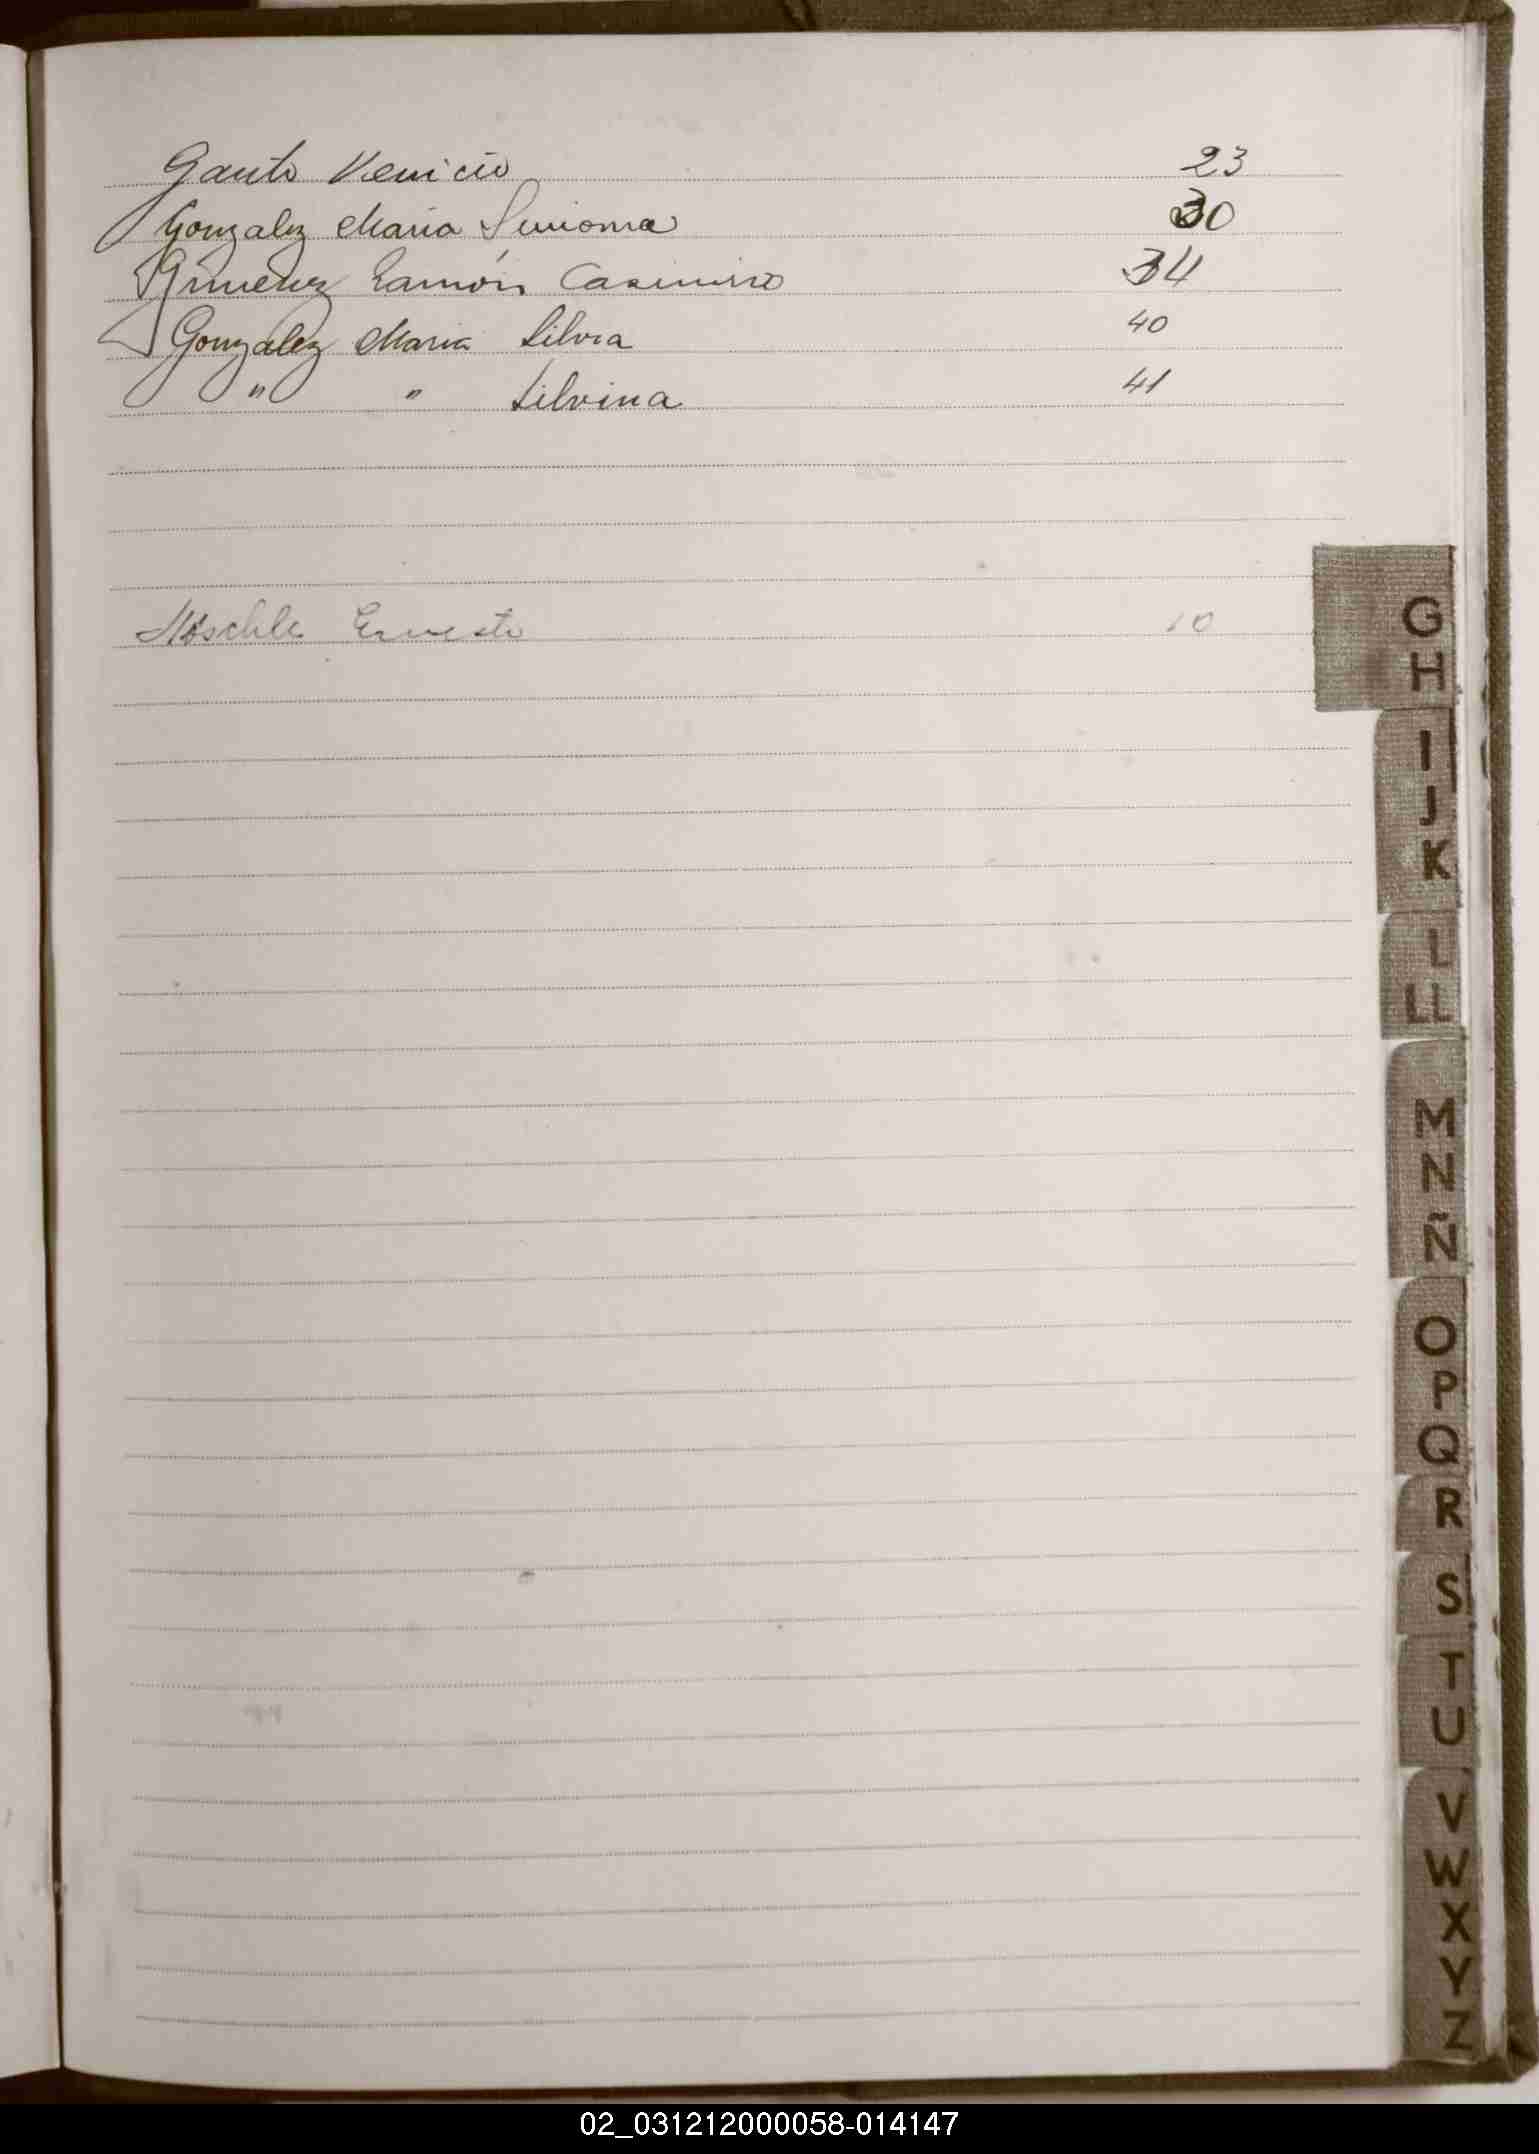 Gauto Venicio 23
Gonzalez Maria 30
Gimenez Ramón Casimiro 34
Gonzalez Maria Silvia 40
" " Silvina 41
Ernesto 10
G
H
I
J
K
L
LL
M
N
Ñ
O
P
Q
R
S
T
U
V
W
X
Y
Z
02_031212000058-014147